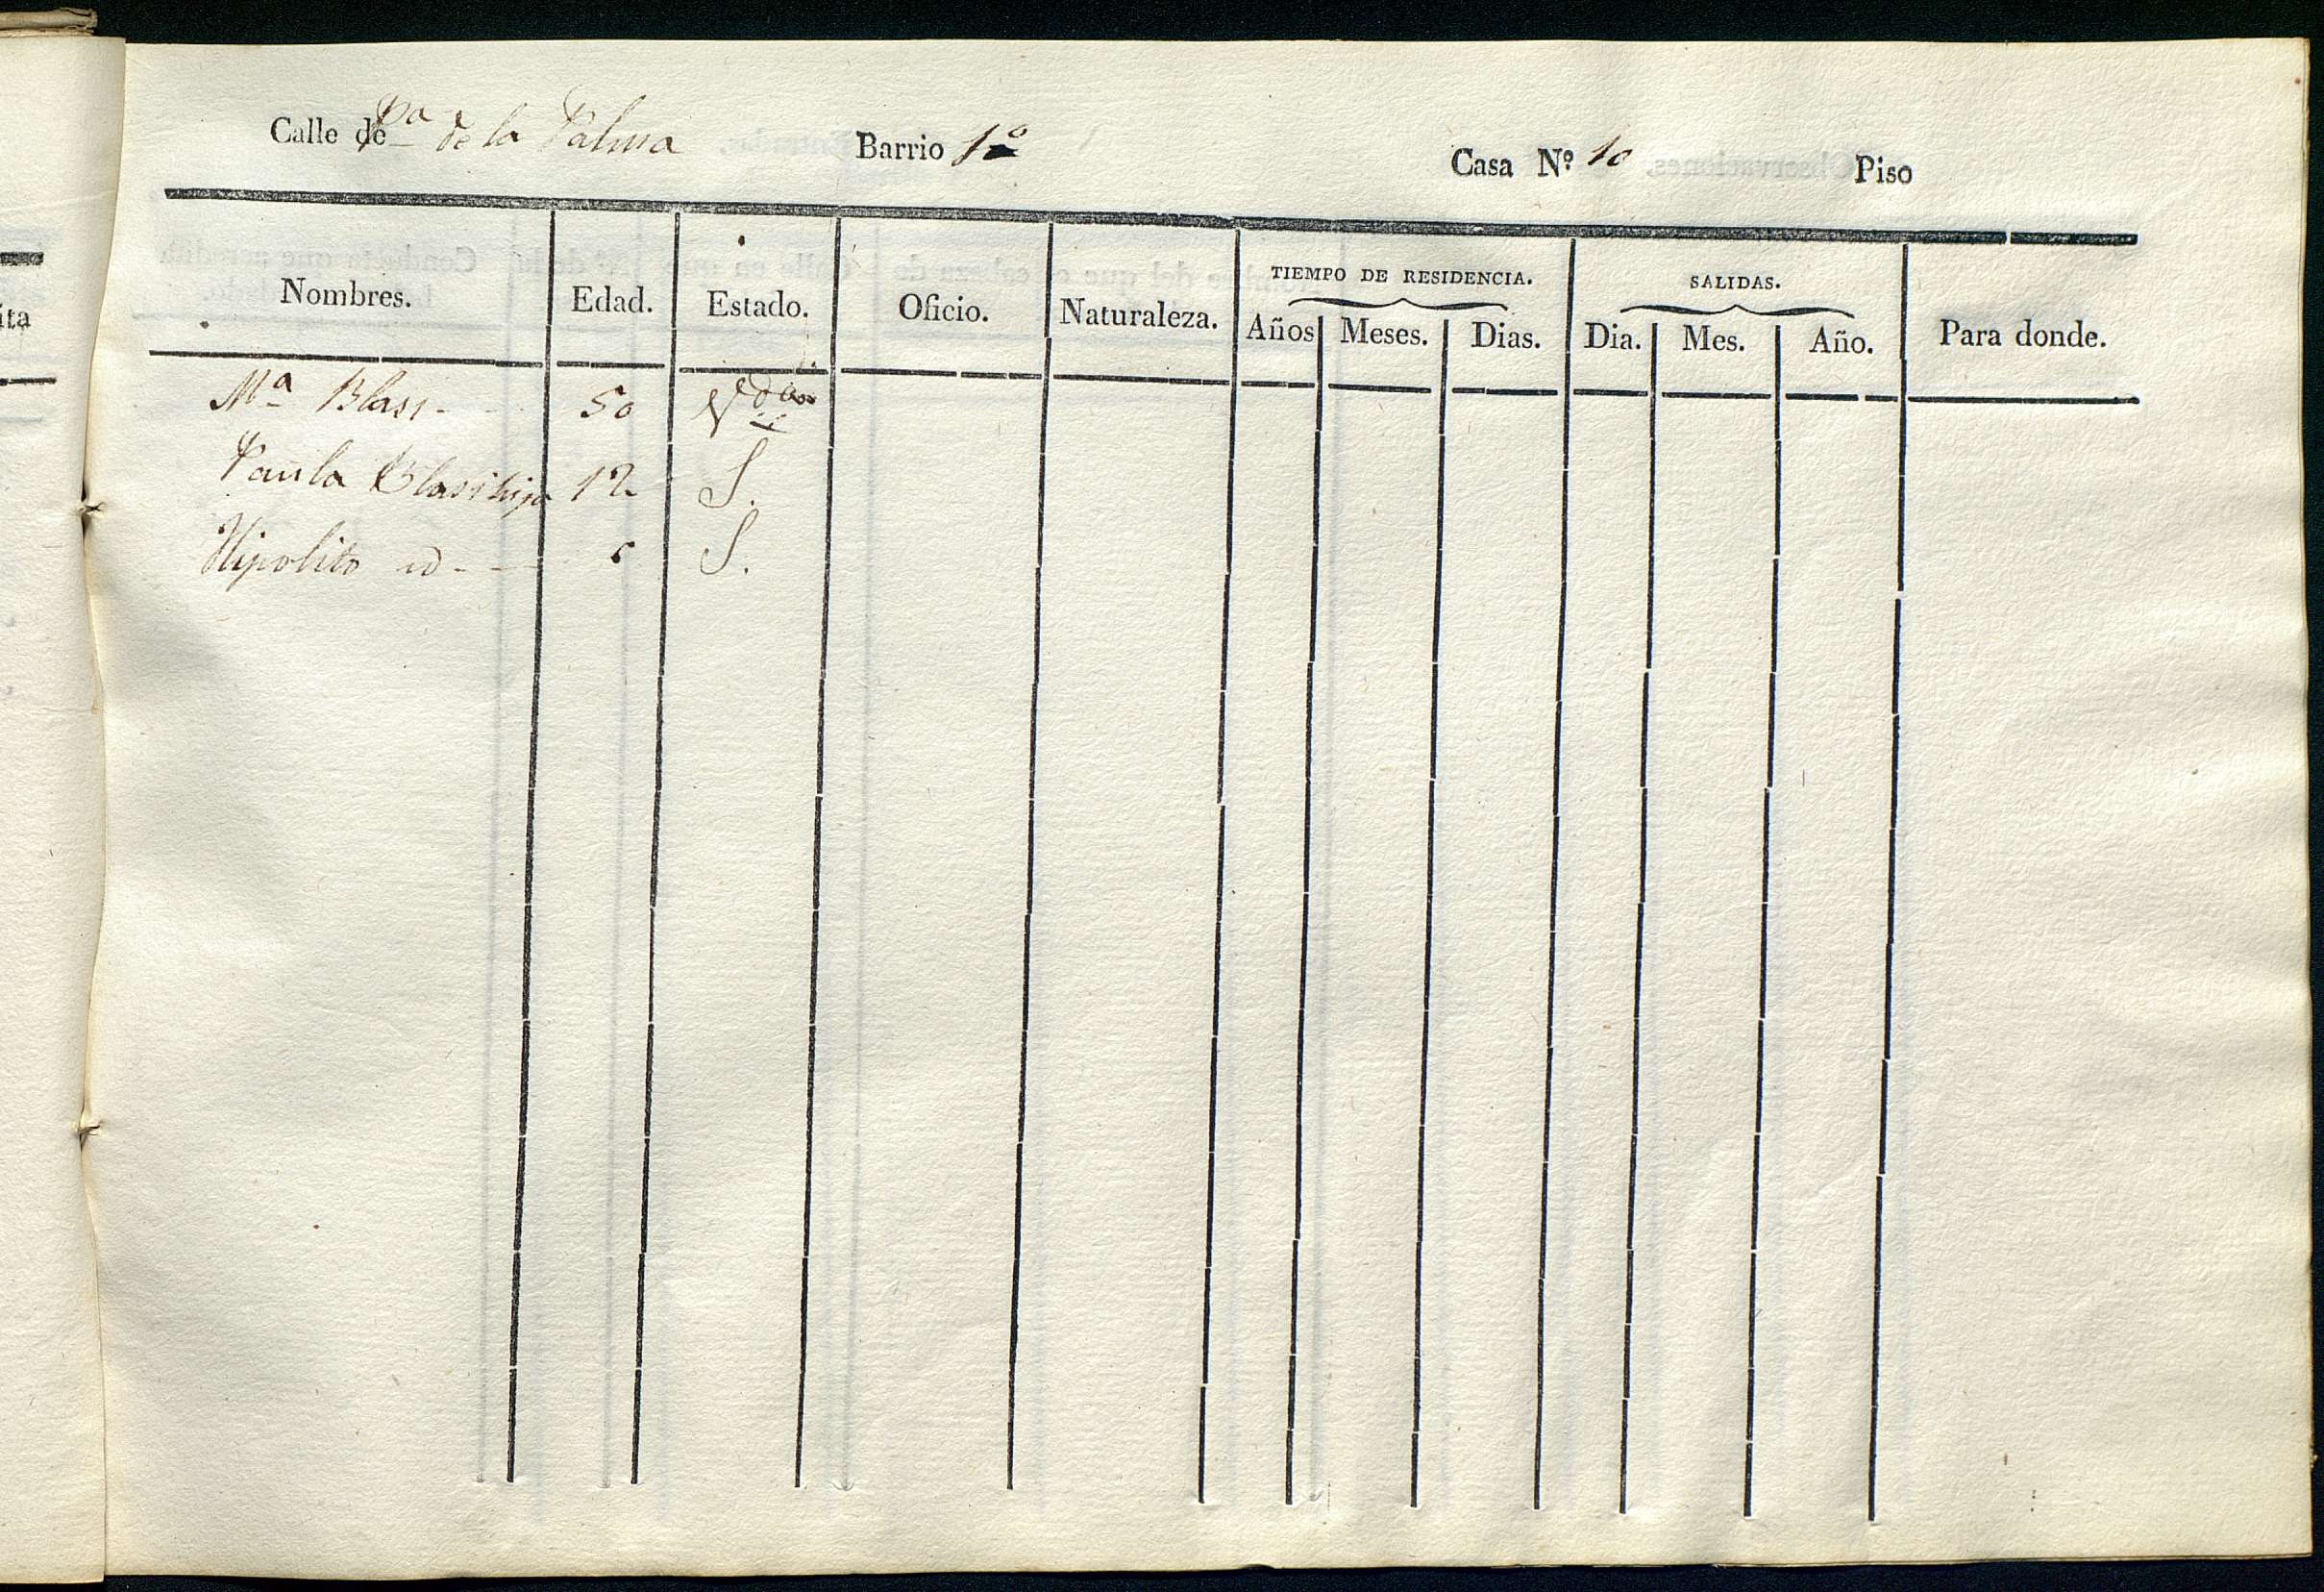 Calle de Pª de la Palma Barrio 1º Casa Nº 10 Piso
Nombres. Edad. Estado. Oficio. Naturaleza. TIEMPO DE RESIDENCIA. SALIDAS. Para donde.
Años Meses. Dias. Dia. Mes. Año.
Mª Blasi 50 Vda
Paula Blasi hija 12 S.
Hipolito id S.
ita